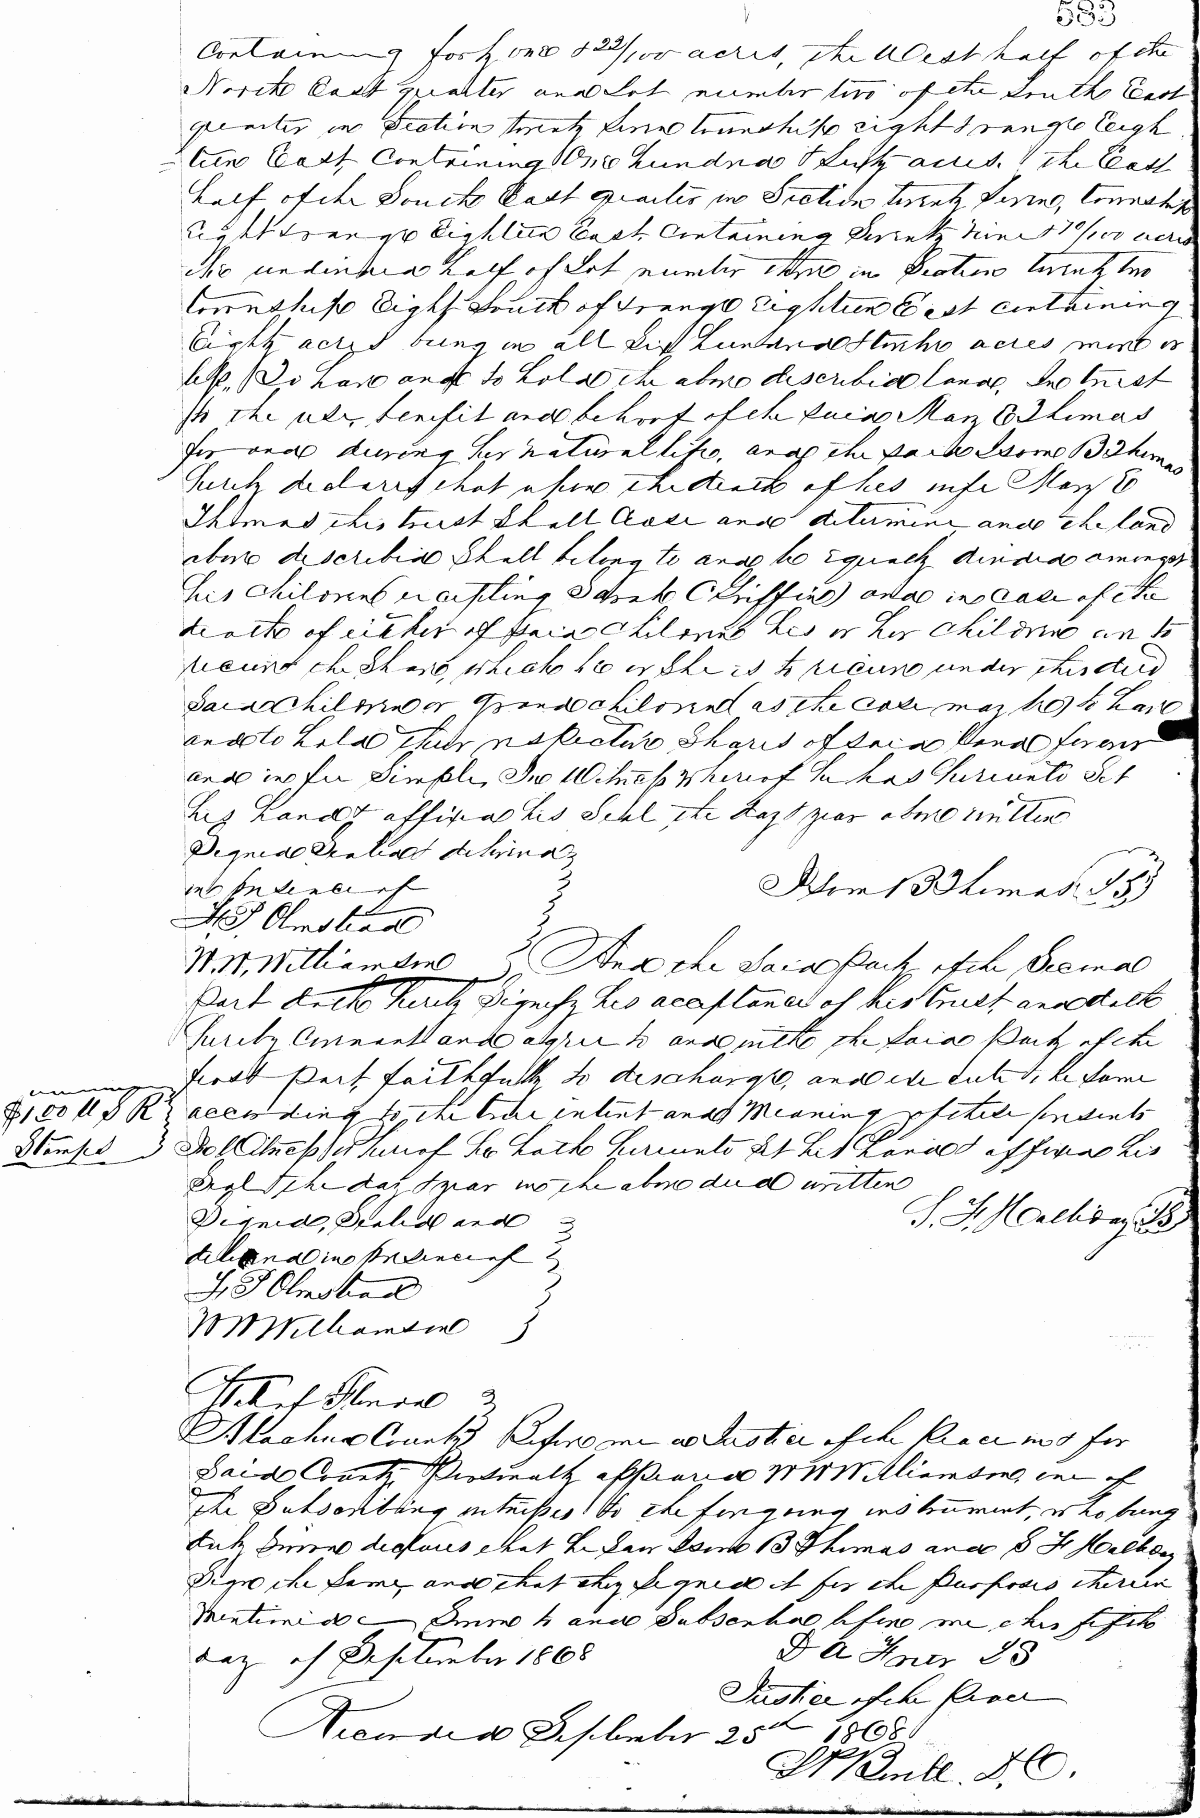 583
containing forty one & 22/100 acres, the West half of the
North East quarter and Lot number two of the South East
quarter in Section twenty seven township eight & range Eigh
teen East, containing One hundred & sixty acres. the East
half of the South East quarter in Section twenty seven, township
eight & range Eighteen East, containing Seventy nine & 70/100 acres
the undivided half of Lot number three in Section twenty two
township Eight South of & range Eighteen East containing
Eighty acres being in all Six hundred & twelve acres more or
less. To have and to hold the above described land, In trust
to the use, benefit and behoof of the said Mary E Thomas
for and during her natural life, and the said Isom B Thomas
hereby declares that upon the death of his wife Mary E
Thomas this trust Shall Cease and determine and the land
above described Shall belong to and be equally divided amongst
his children (excepting Sarah C Griffin) and in case of the
death of either of said children his or her children are to
receive the Share, which he or She is to receive under this deed
said children or grandchildren (as the case may be) to have
and to hold their respective Shares of said land forever
and in fee Simple, In Witness whereof he has hereunto Set
his hand & affixed his Seal, the day & year above written
Signed Sealed & delivered
in presence of
Isom B Thomas LS
F. P. Olmstead
W. W. Williamson And the Said Party of the Second
Part doth hereby Signify his acceptance of his trust, and doth
hereby covenant and agree to and with the Said Party of the
first Part, faithfully to discharge, and execute the same
$1.00 U S R
according to the true intent and Meaning of these presents
Stamps
In Witness Whereof He hath hereunto Set his hand & affixed his
Seal the day & year in the above deed written
S. F. Halliday LS
Signed, Sealed and
delivered in presence of
F. P Olmstead
W W Williamson
State of Florida
Alachua County Before me a Justice of the Peace in & for
Said County Personally appeared W W Williamson, one of
the Subscribing witnesses to the foregoing instrument, who being
duly Sworn declares that he Saw Isom B Thomas and S F Halliday
Sign the Same, and that they Signed it for the Purposes therein
Mentioned Sworn to and Subscribed before me this fifth
day of September 1868
D A LS
Justice of the Peace
Recorded September 25th 1868
D. C.